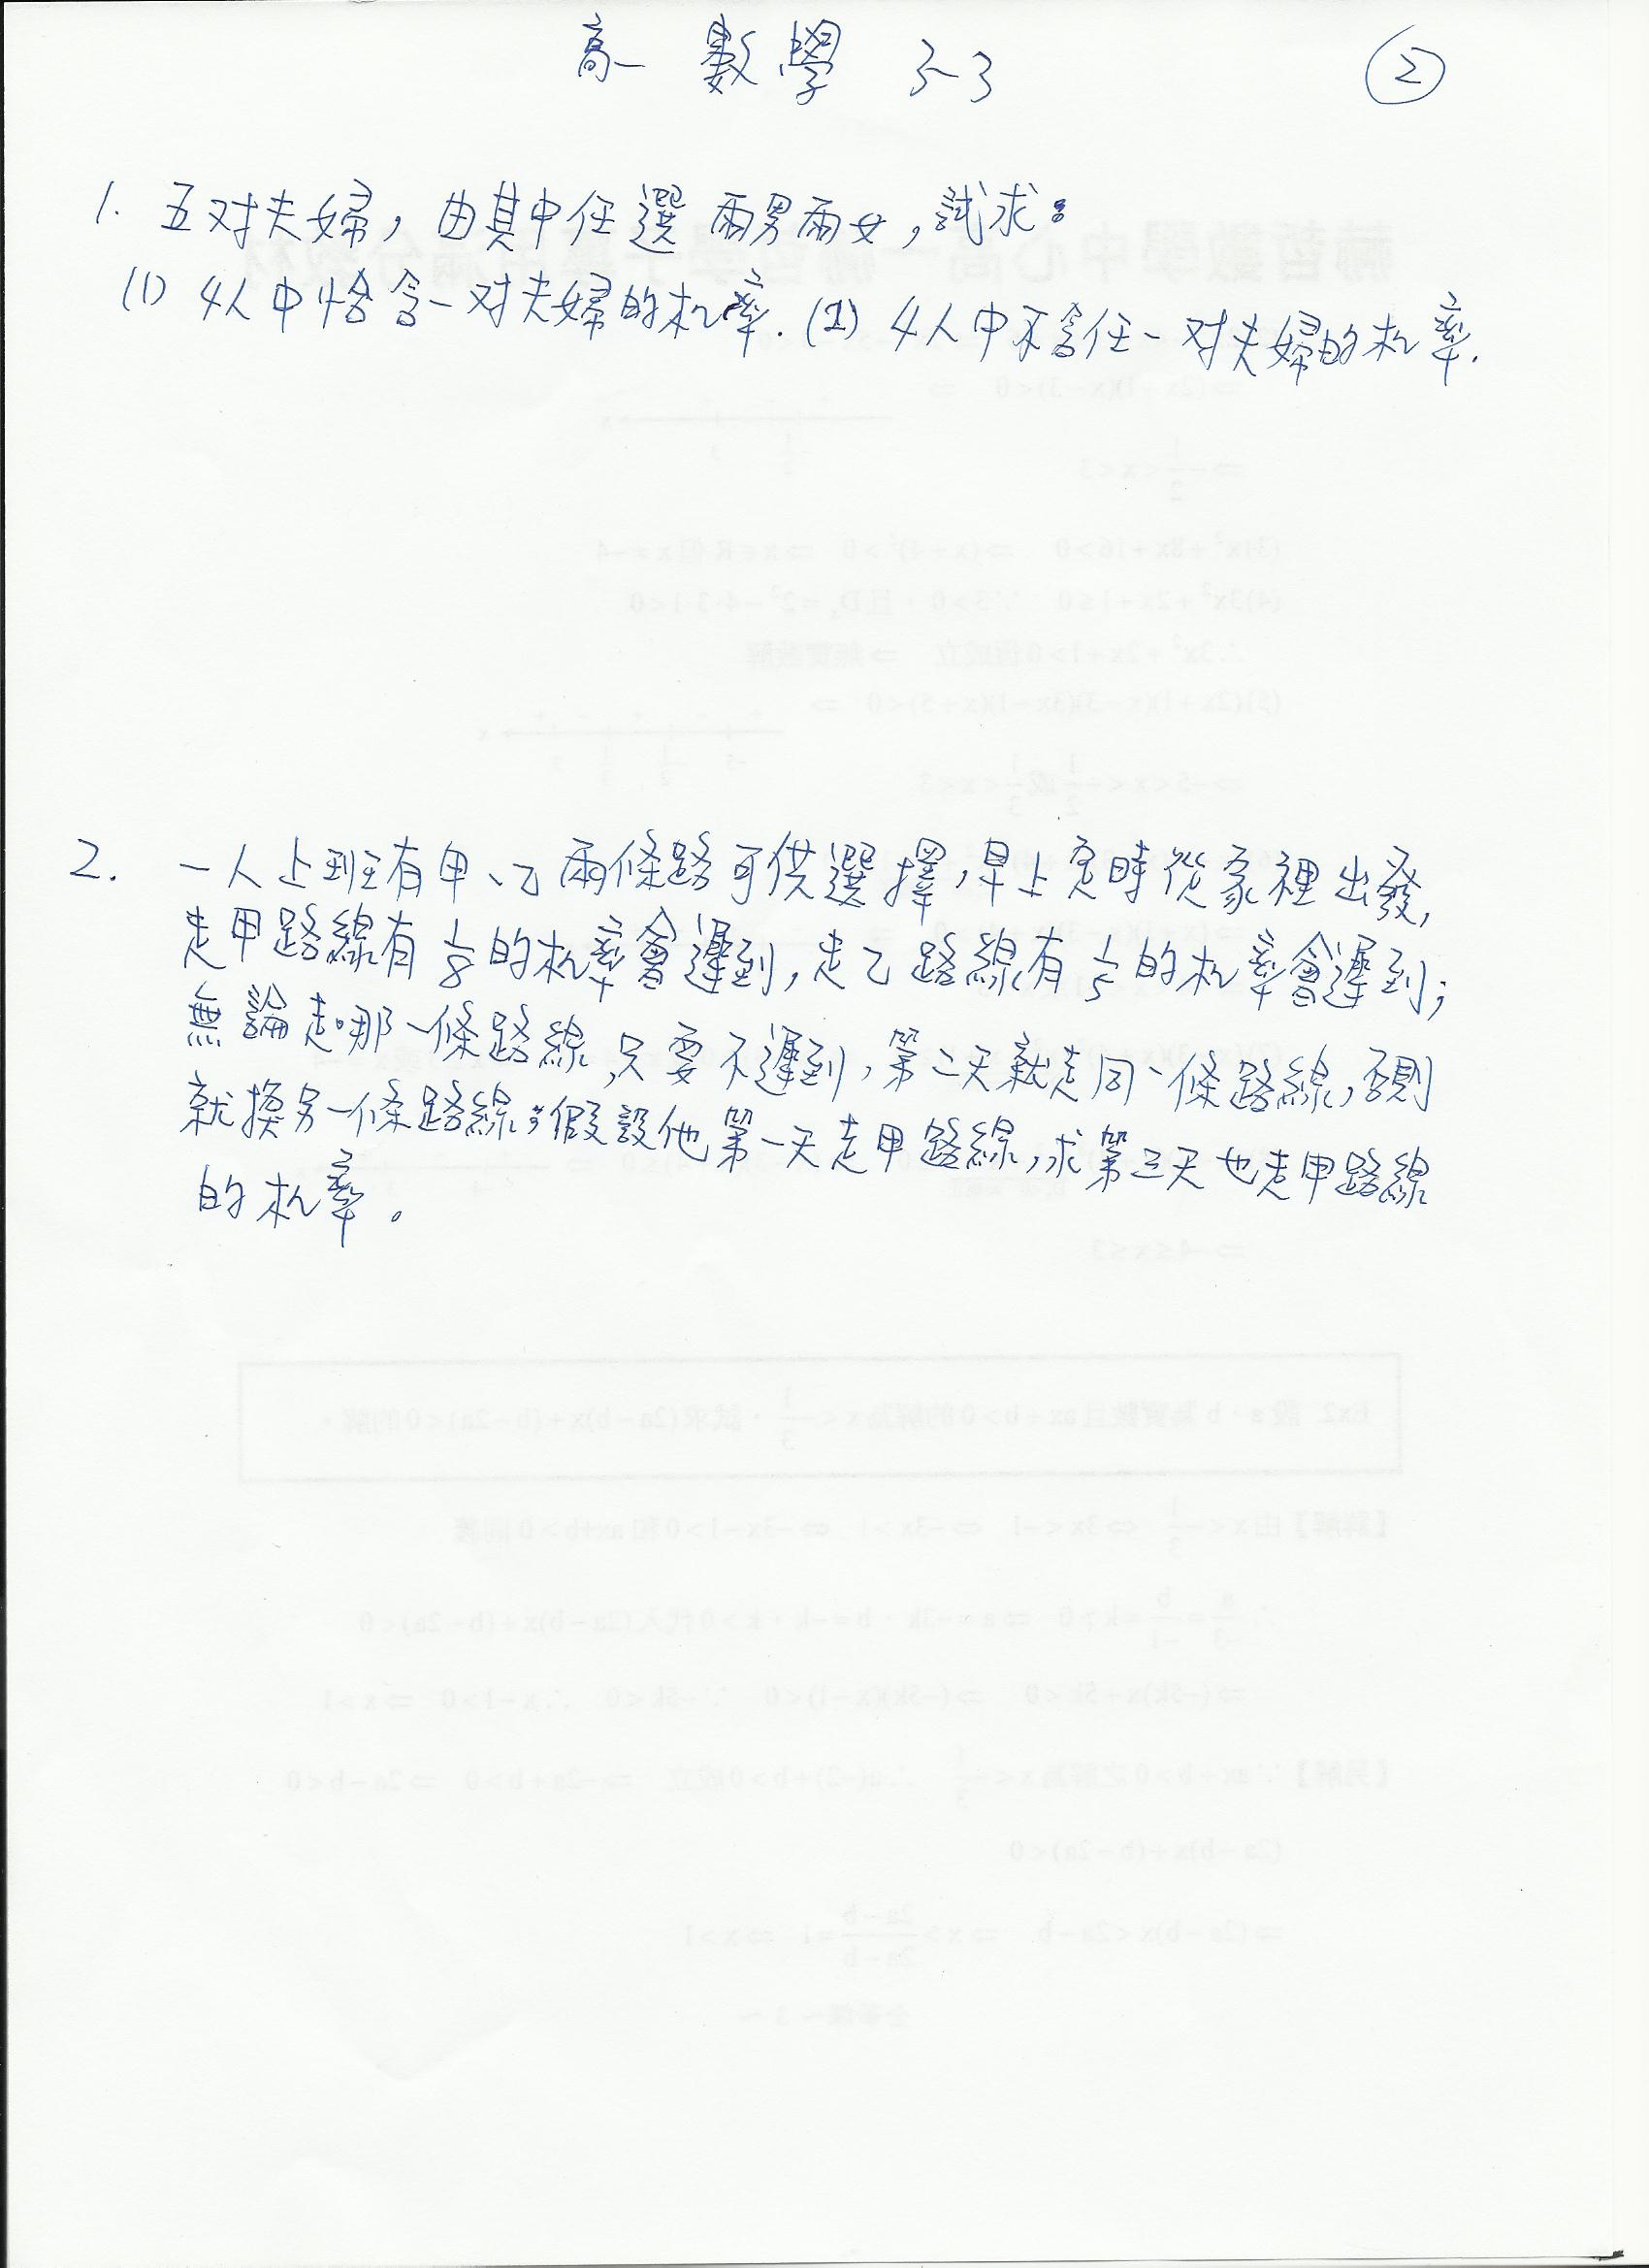 高一 數學 3-3 ②
1. 五对夫婦, 由其中任選兩男兩女, 試求:
(1) 4人中恰含一对夫婦的机率. (2) 4人中不含任一对夫婦的机率.
2. 一人上班有甲、乙兩條路可供選擇, 早上定時從家裡出發,
走甲路線有 1/8 的机率會遲到, 走乙路線有 1/5 的机率會遲到;
無論走哪一條路線, 只要不遲到, 第二天就走同一條路線, 否則
就換另一條路線; 假設他第一天走甲路線, 求第三天也走甲路線
的机率。